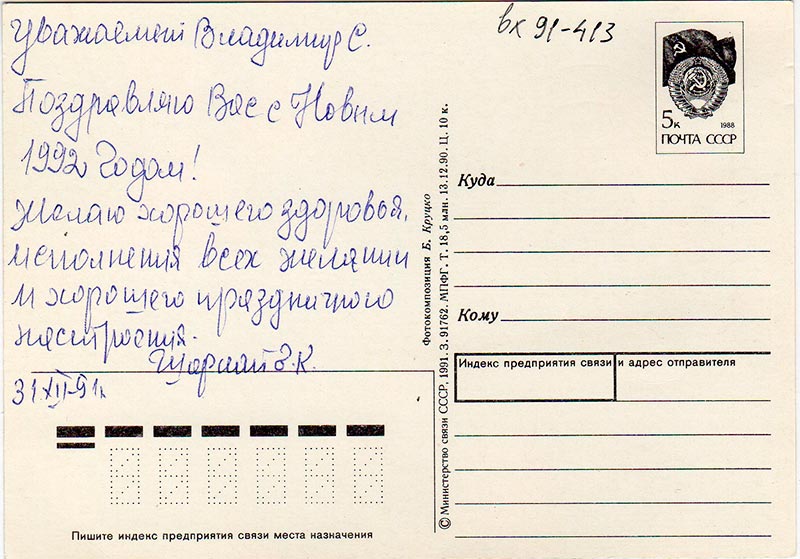 Уважаемый Владимир С.
Поздравляю Вас с Новым
1992 Годом!
Желаю хорошего здоровья,
исполнения всех желаний
и хорошего праздничного
настроения.
З.К.
31 XII-91г
Пишите индекс предприятия связи места назначения
© Министерство связи СССР, 1991. З. 91762. МПФГ. Т. 18,5 млн. 13.12.90. Ц. 10 к.
Фотокомпозиция Б. Круцко
вх 91-413
5к 1988
ПОЧТА СССР
Куда
Кому
Индекс предприятия связи и адрес отправителя